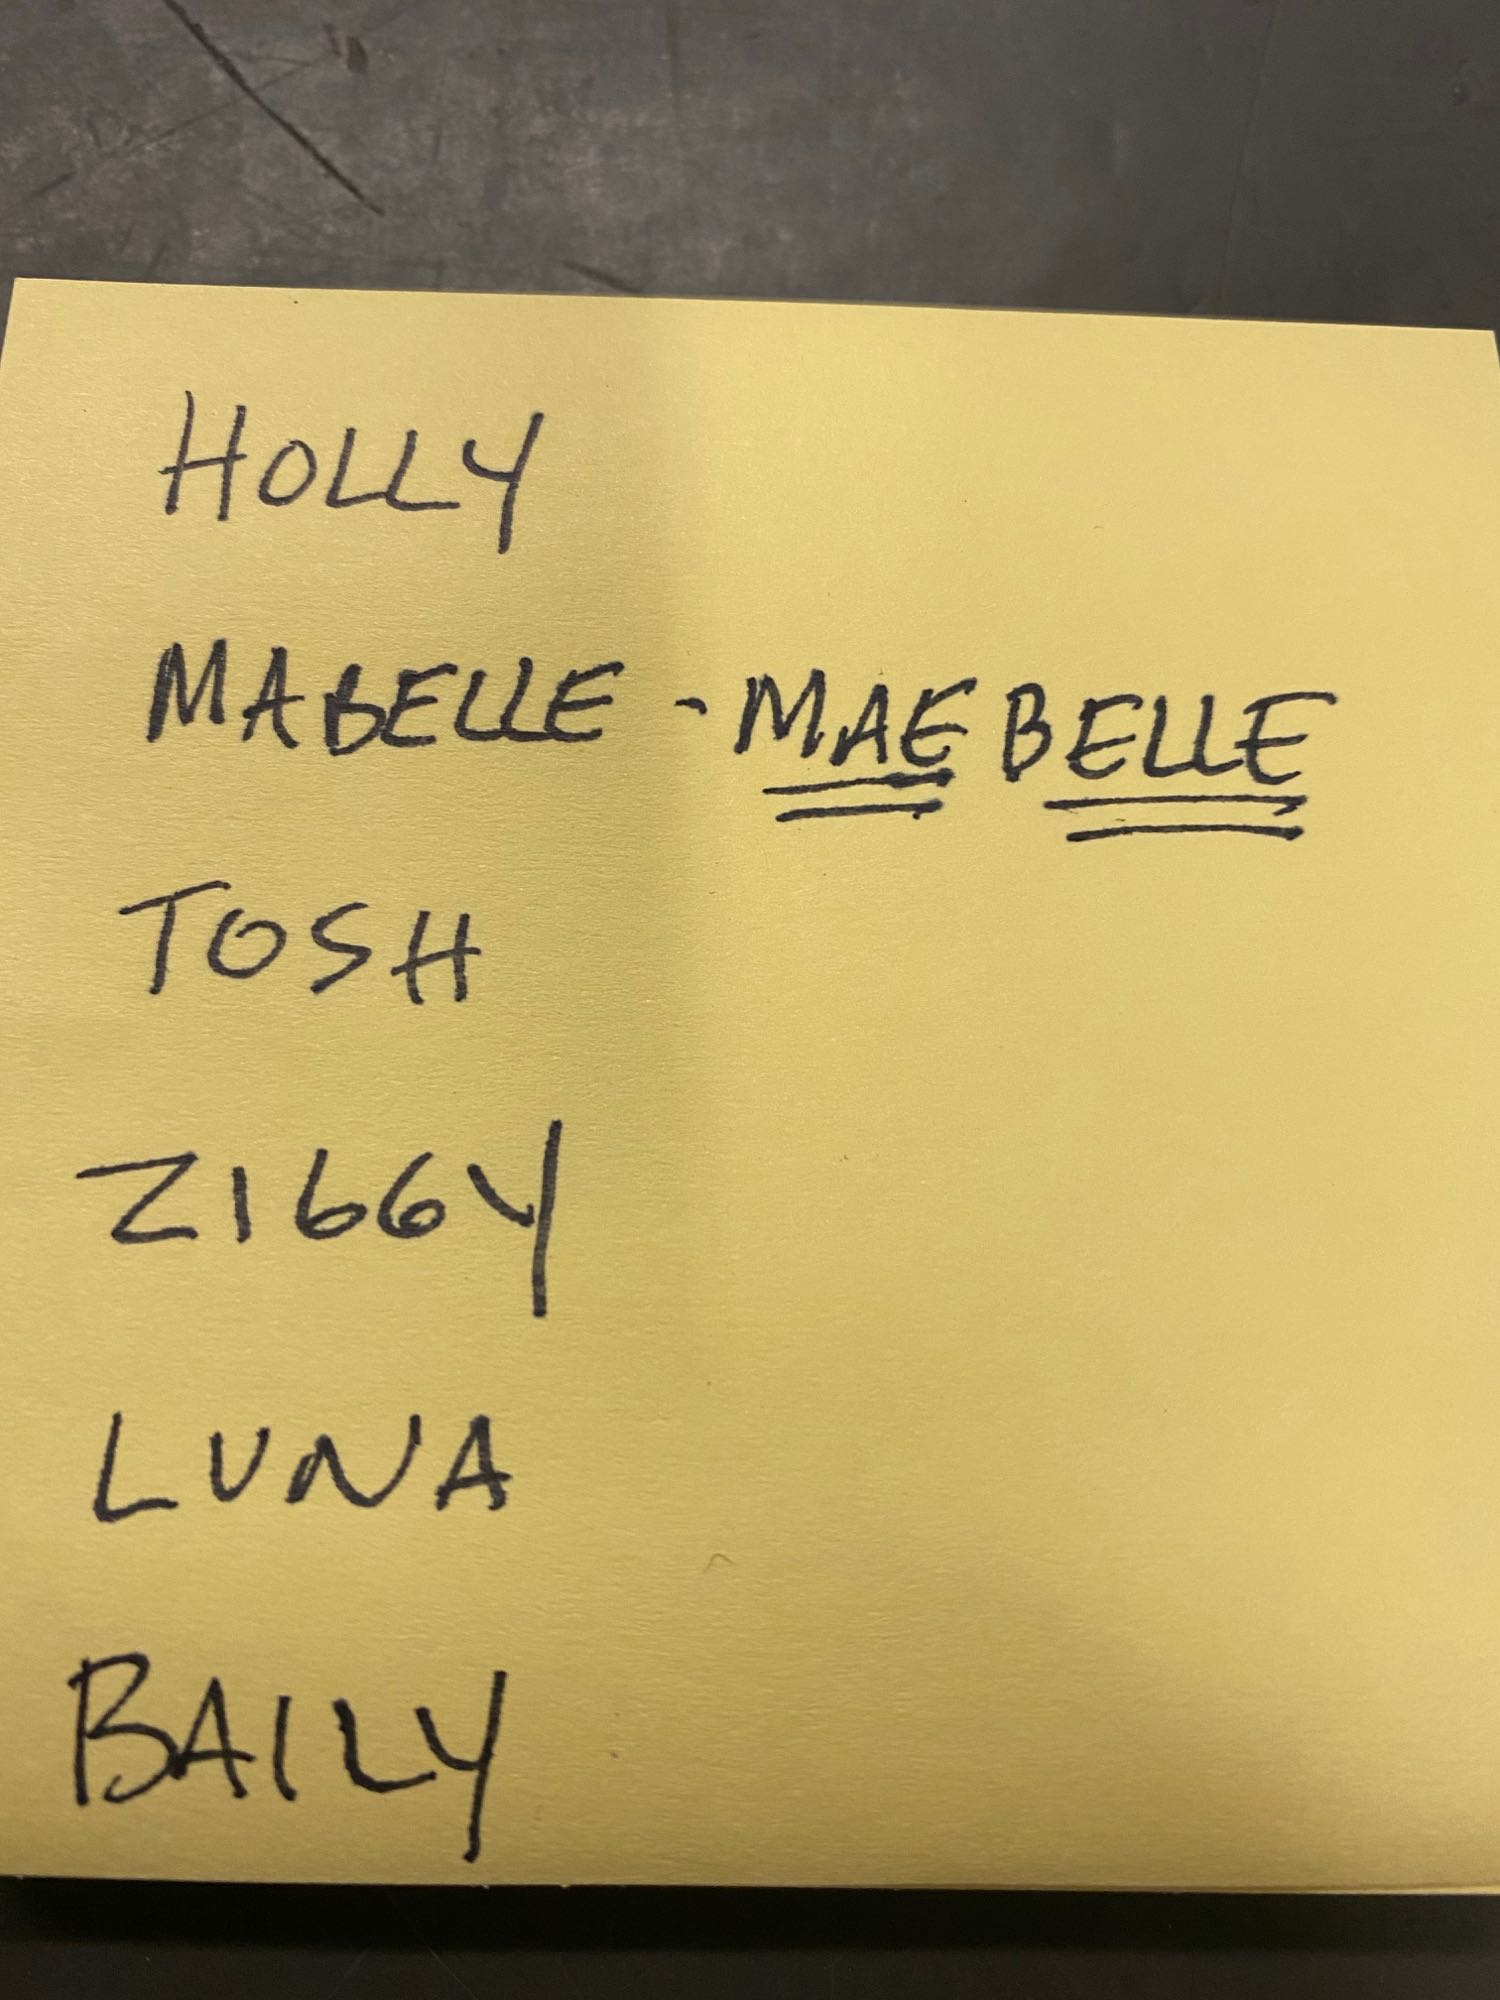 HOLLY
MABELLE - MAE BELLE
TOSH
ZIGGY
LUNA
BAILY